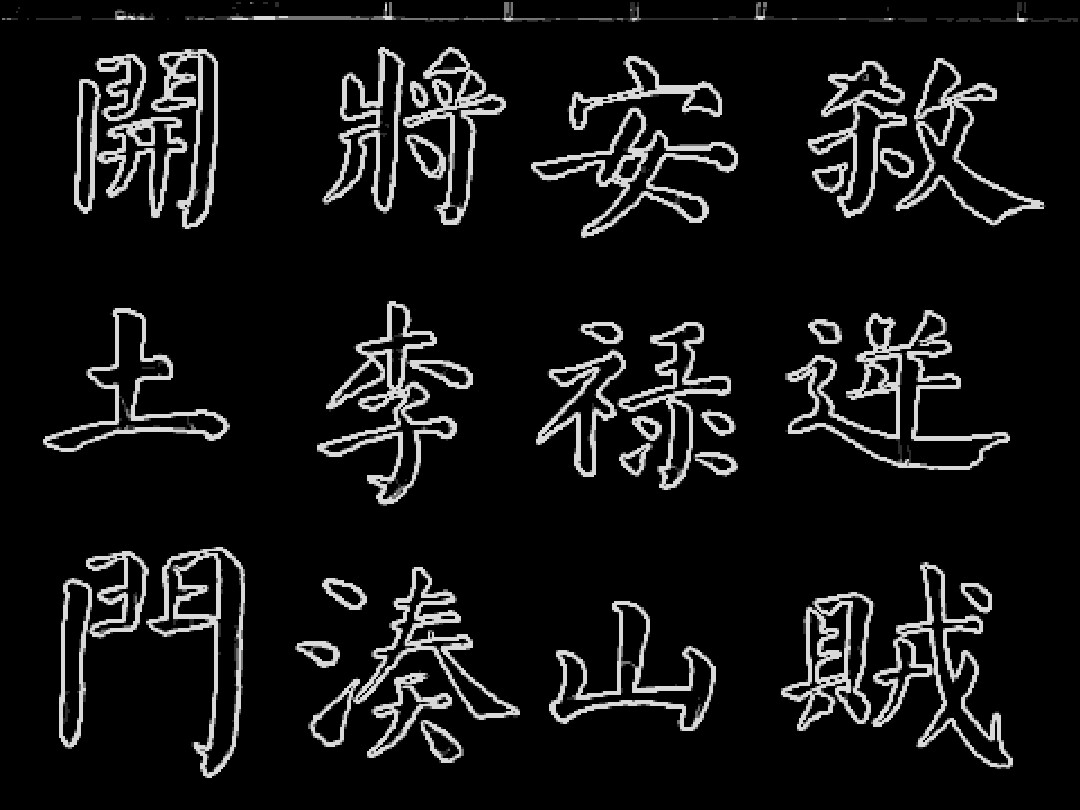 殺逆賊
安禄山
將李湊
開土門